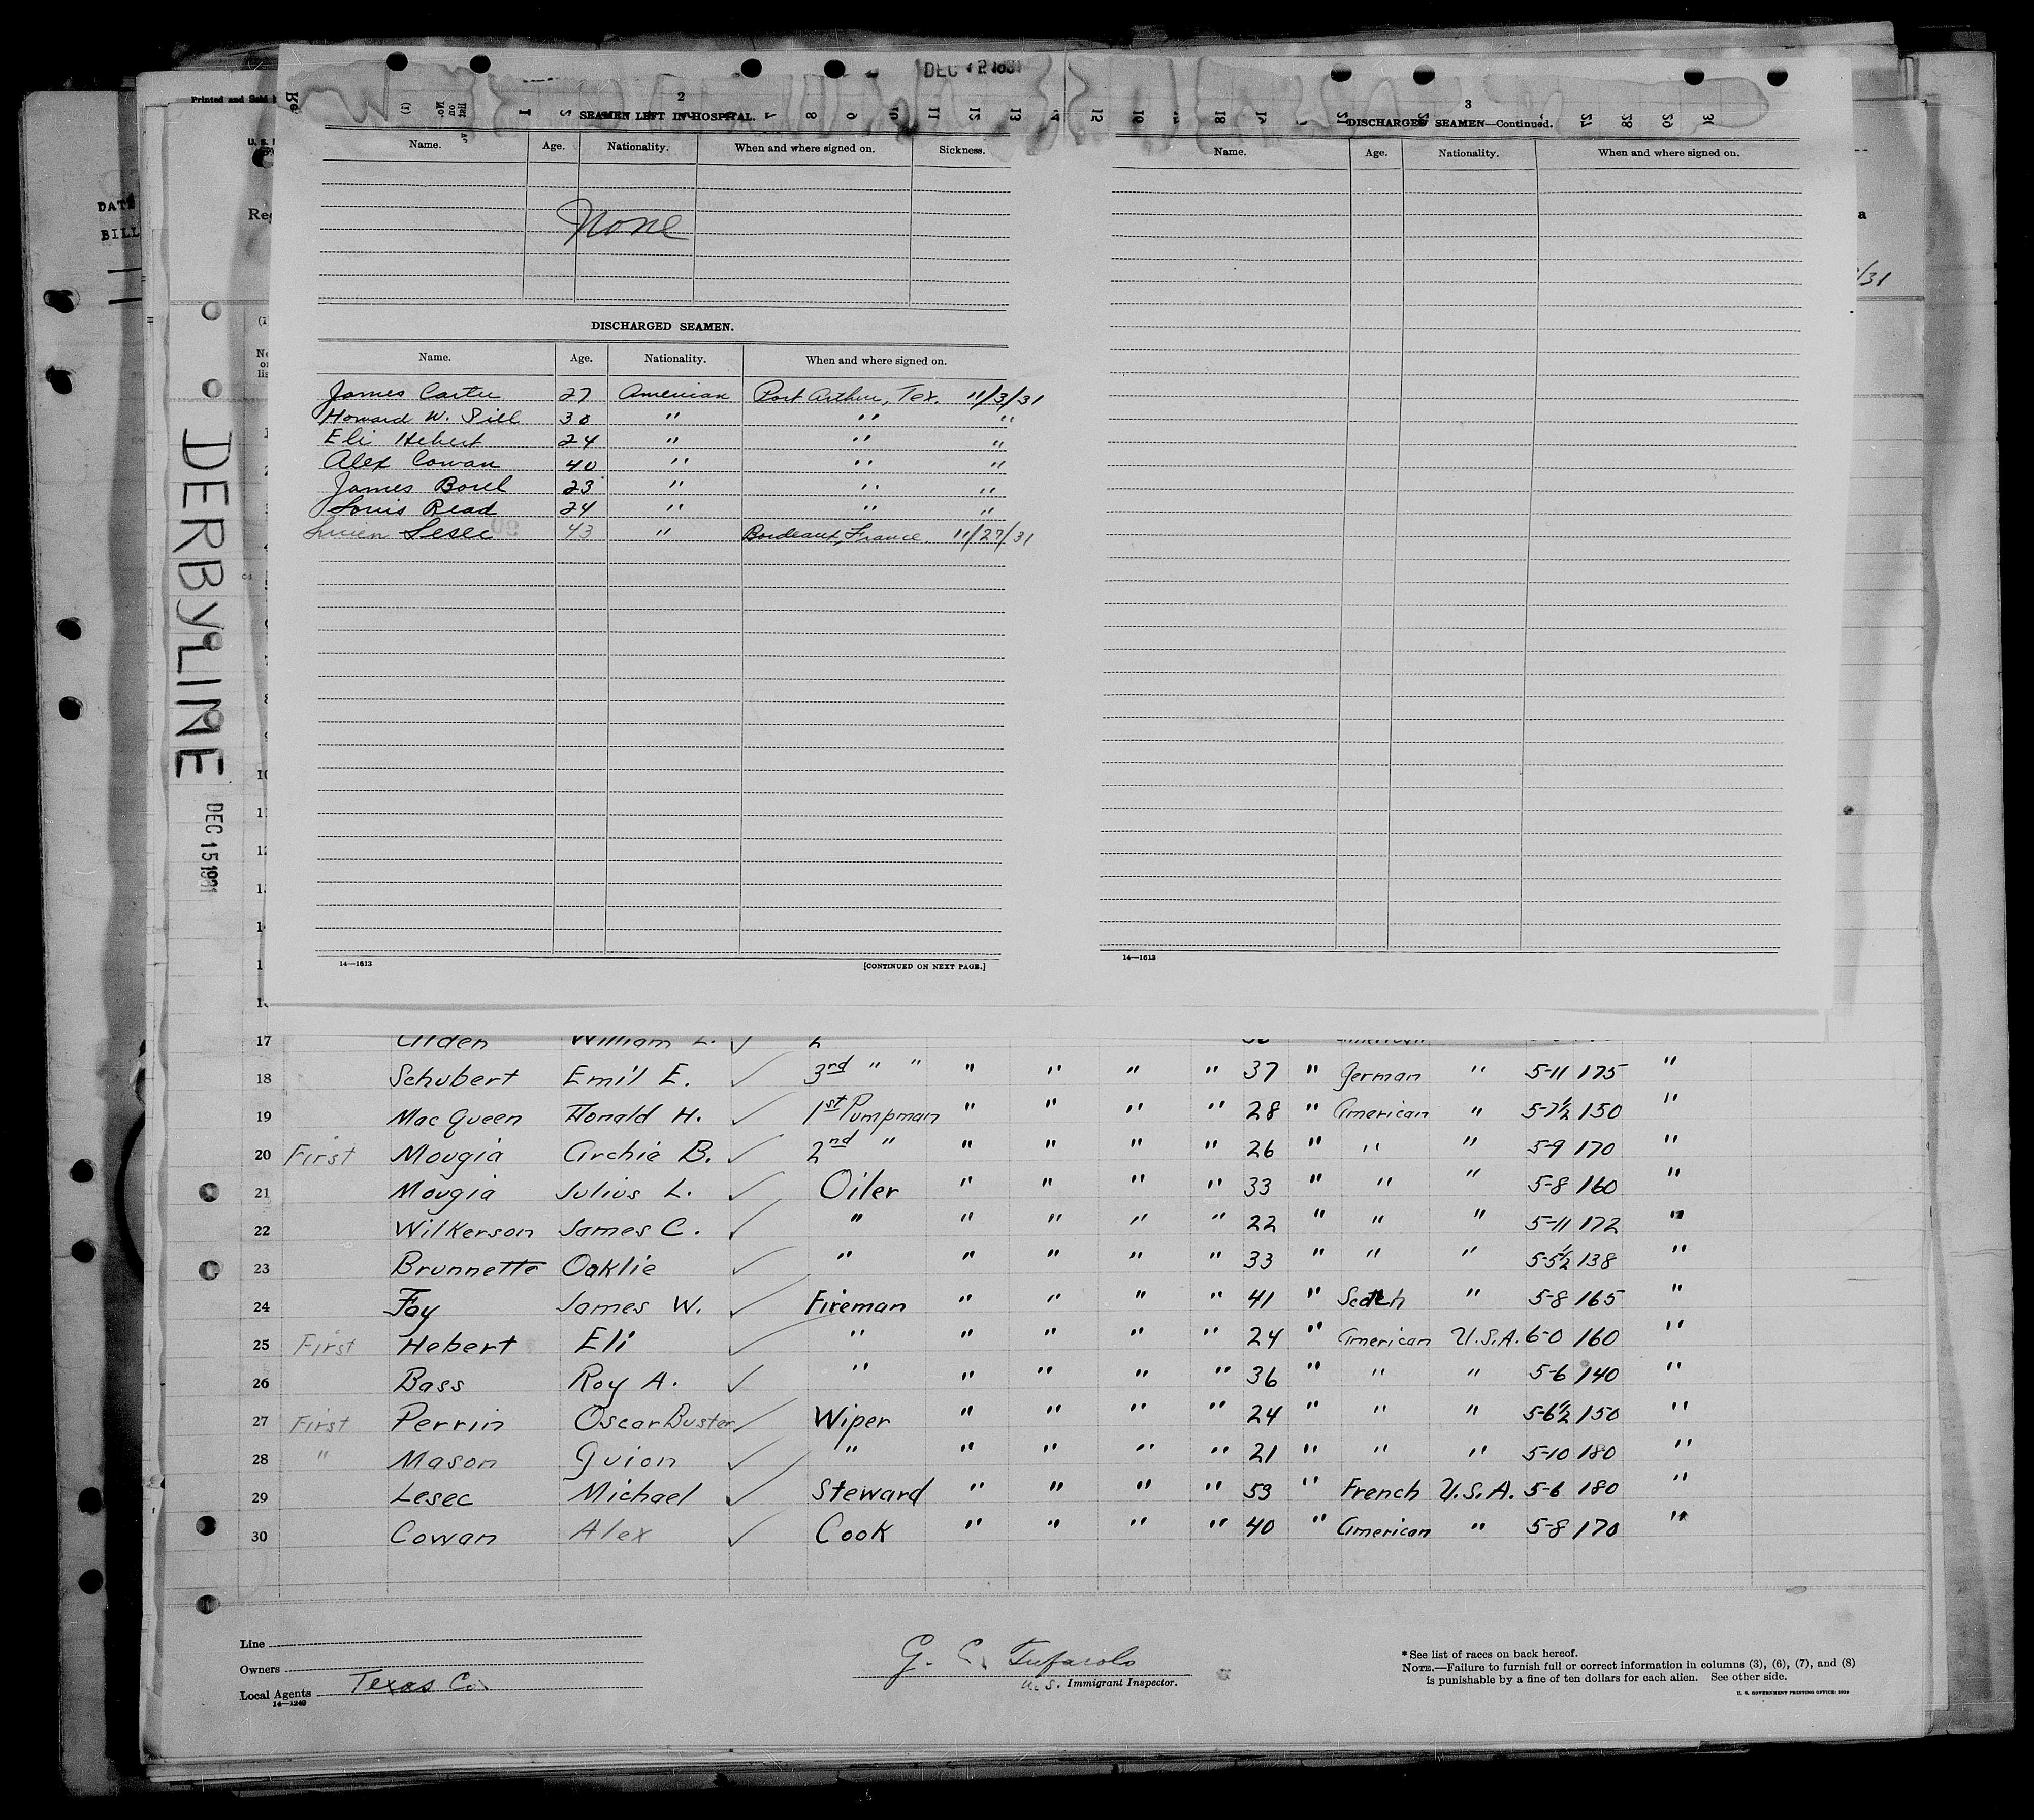 DEC 12 1931
2
SEAMEN LEFT IN HOSPITAL.
Name. Age. Nationality. When and where signed on. Sickness.
None
DISCHARGED SEAMEN.
Name. Age. Nationality. When and where signed on.
James Carter 27 American Port Arthur, Tex. 11/3/31
Howard W. Sill 30 " " "
Eli Hebert 24 " " "
Alex Cowan 40 " " "
James Borel 23 " " "
Louis Read 24 " " "
Lucien Lesec 43 " Bordeaux, France. 11/27/31
14—1613 [CONTINUED ON NEXT PAGE.]
3
DISCHARGED SEAMEN—Continued.
Name. Age. Nationality. When and where signed on.
14—1613
Printed and Sold
DATE
BILL
/31
DERBYLINE
DEC 15 1931
17 Alden William L.
18 Schubert Emil E. 3rd " " " " " " 37 " German " 5-11 175 "
19 MacQueen Donald H. 1st Pumpman " " " " 28 " American " 5-7½ 150 "
20 First Mougia Archie B. 2nd " " " " " 26 " " " 5-9 170 "
21 Mougia Julius L. Oiler " " " " 33 " " " 5-8 160 "
22 Wilkerson James C. " " " " " 22 " " " 5-11 172 "
23 Brunnette Oaklie " " " " " 33 " " " 5-5½ 138 "
24 Fay James W. Fireman " " " " 41 " Scotch " 5-8 165 "
25 First Hebert Eli " " " " " 24 " American U.S.A. 6-0 160 "
26 Bass Roy A. " " " " " 36 " " " 5-6 140 "
27 First Perrin Oscar Buster Wiper " " " " 24 " " " 5-6½ 150 "
28 " Mason Guion " " " " " 21 " " " 5-10 180 "
29 Lesec Michael Steward " " " " 53 " French U.S.A. 5-6 180 "
30 Cowan Alex Cook " " " " 40 " American " 5-8 170 "
Line
Owners
Local Agents Texas Co.
14—1240
G. C. Tufarolo
U. S. Immigrant Inspector.
*See list of races on back hereof.
NOTE.—Failure to furnish full or correct information in columns (3), (6), (7), and (8)
is punishable by a fine of ten dollars for each alien. See other side.
U. S. GOVERNMENT PRINTING OFFICE: